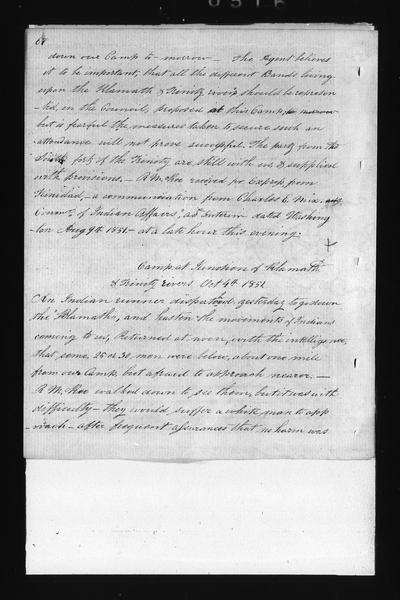 68
down our Camp to-morrow — The Agent believes
it to be important, that all the different Bands living
upon the Klamath & Trinity rivers should be represen
-ted, in the Council, proposed at this Camp,
but is fearful the measures taken to secure such an
attendance will not prove successful. The party from the
South fork of the Trinity are still with us, & supplied
with provisions. — R McKee received pr Express, from
Trinidad, — a communication from Charles E. Mix. actg
Commr of Indian Affairs, ad Interim dated Washing
-ton Aug 9th 1851 — at a late hour this evening.
Camp at Junction of Klamath
& Trinity rivers Oct 4th 1851
An Indian runner despatched yesterday to go down
the Klamath, and hasten the movements of Indians
coming to us, Returned at noon, with the intelligence,
that some, 25 or 30, men were below, about one mile
from our Camp, but afraid to approach nearer. —
R McKee walked down to see them, but it was with
difficulty — they would suffer a white man to app
-roach — after frequent assurances that no harm was